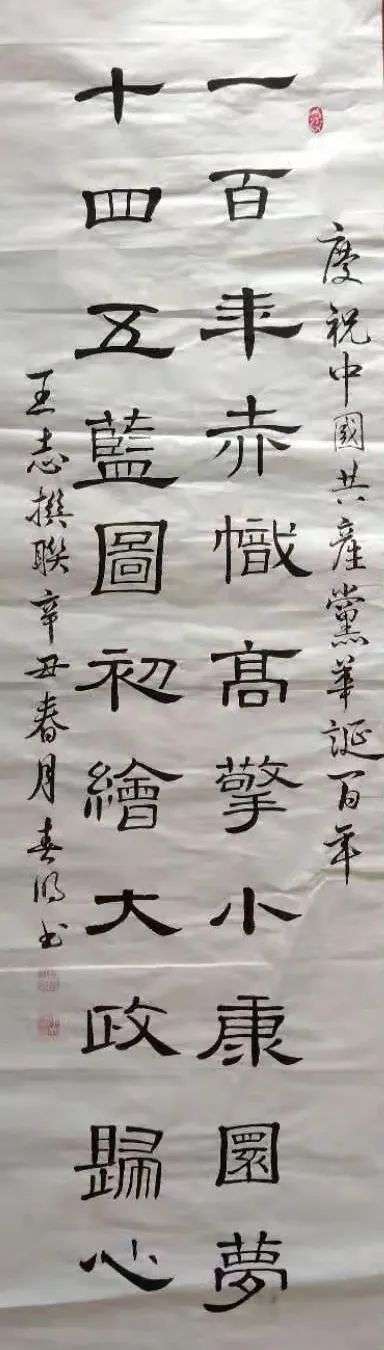 慶祝中國共產黨華誕百年
一百年赤幟高擎小康圓夢
十四五藍圖初繪大政歸心
王志撰聯辛丑春月春明書